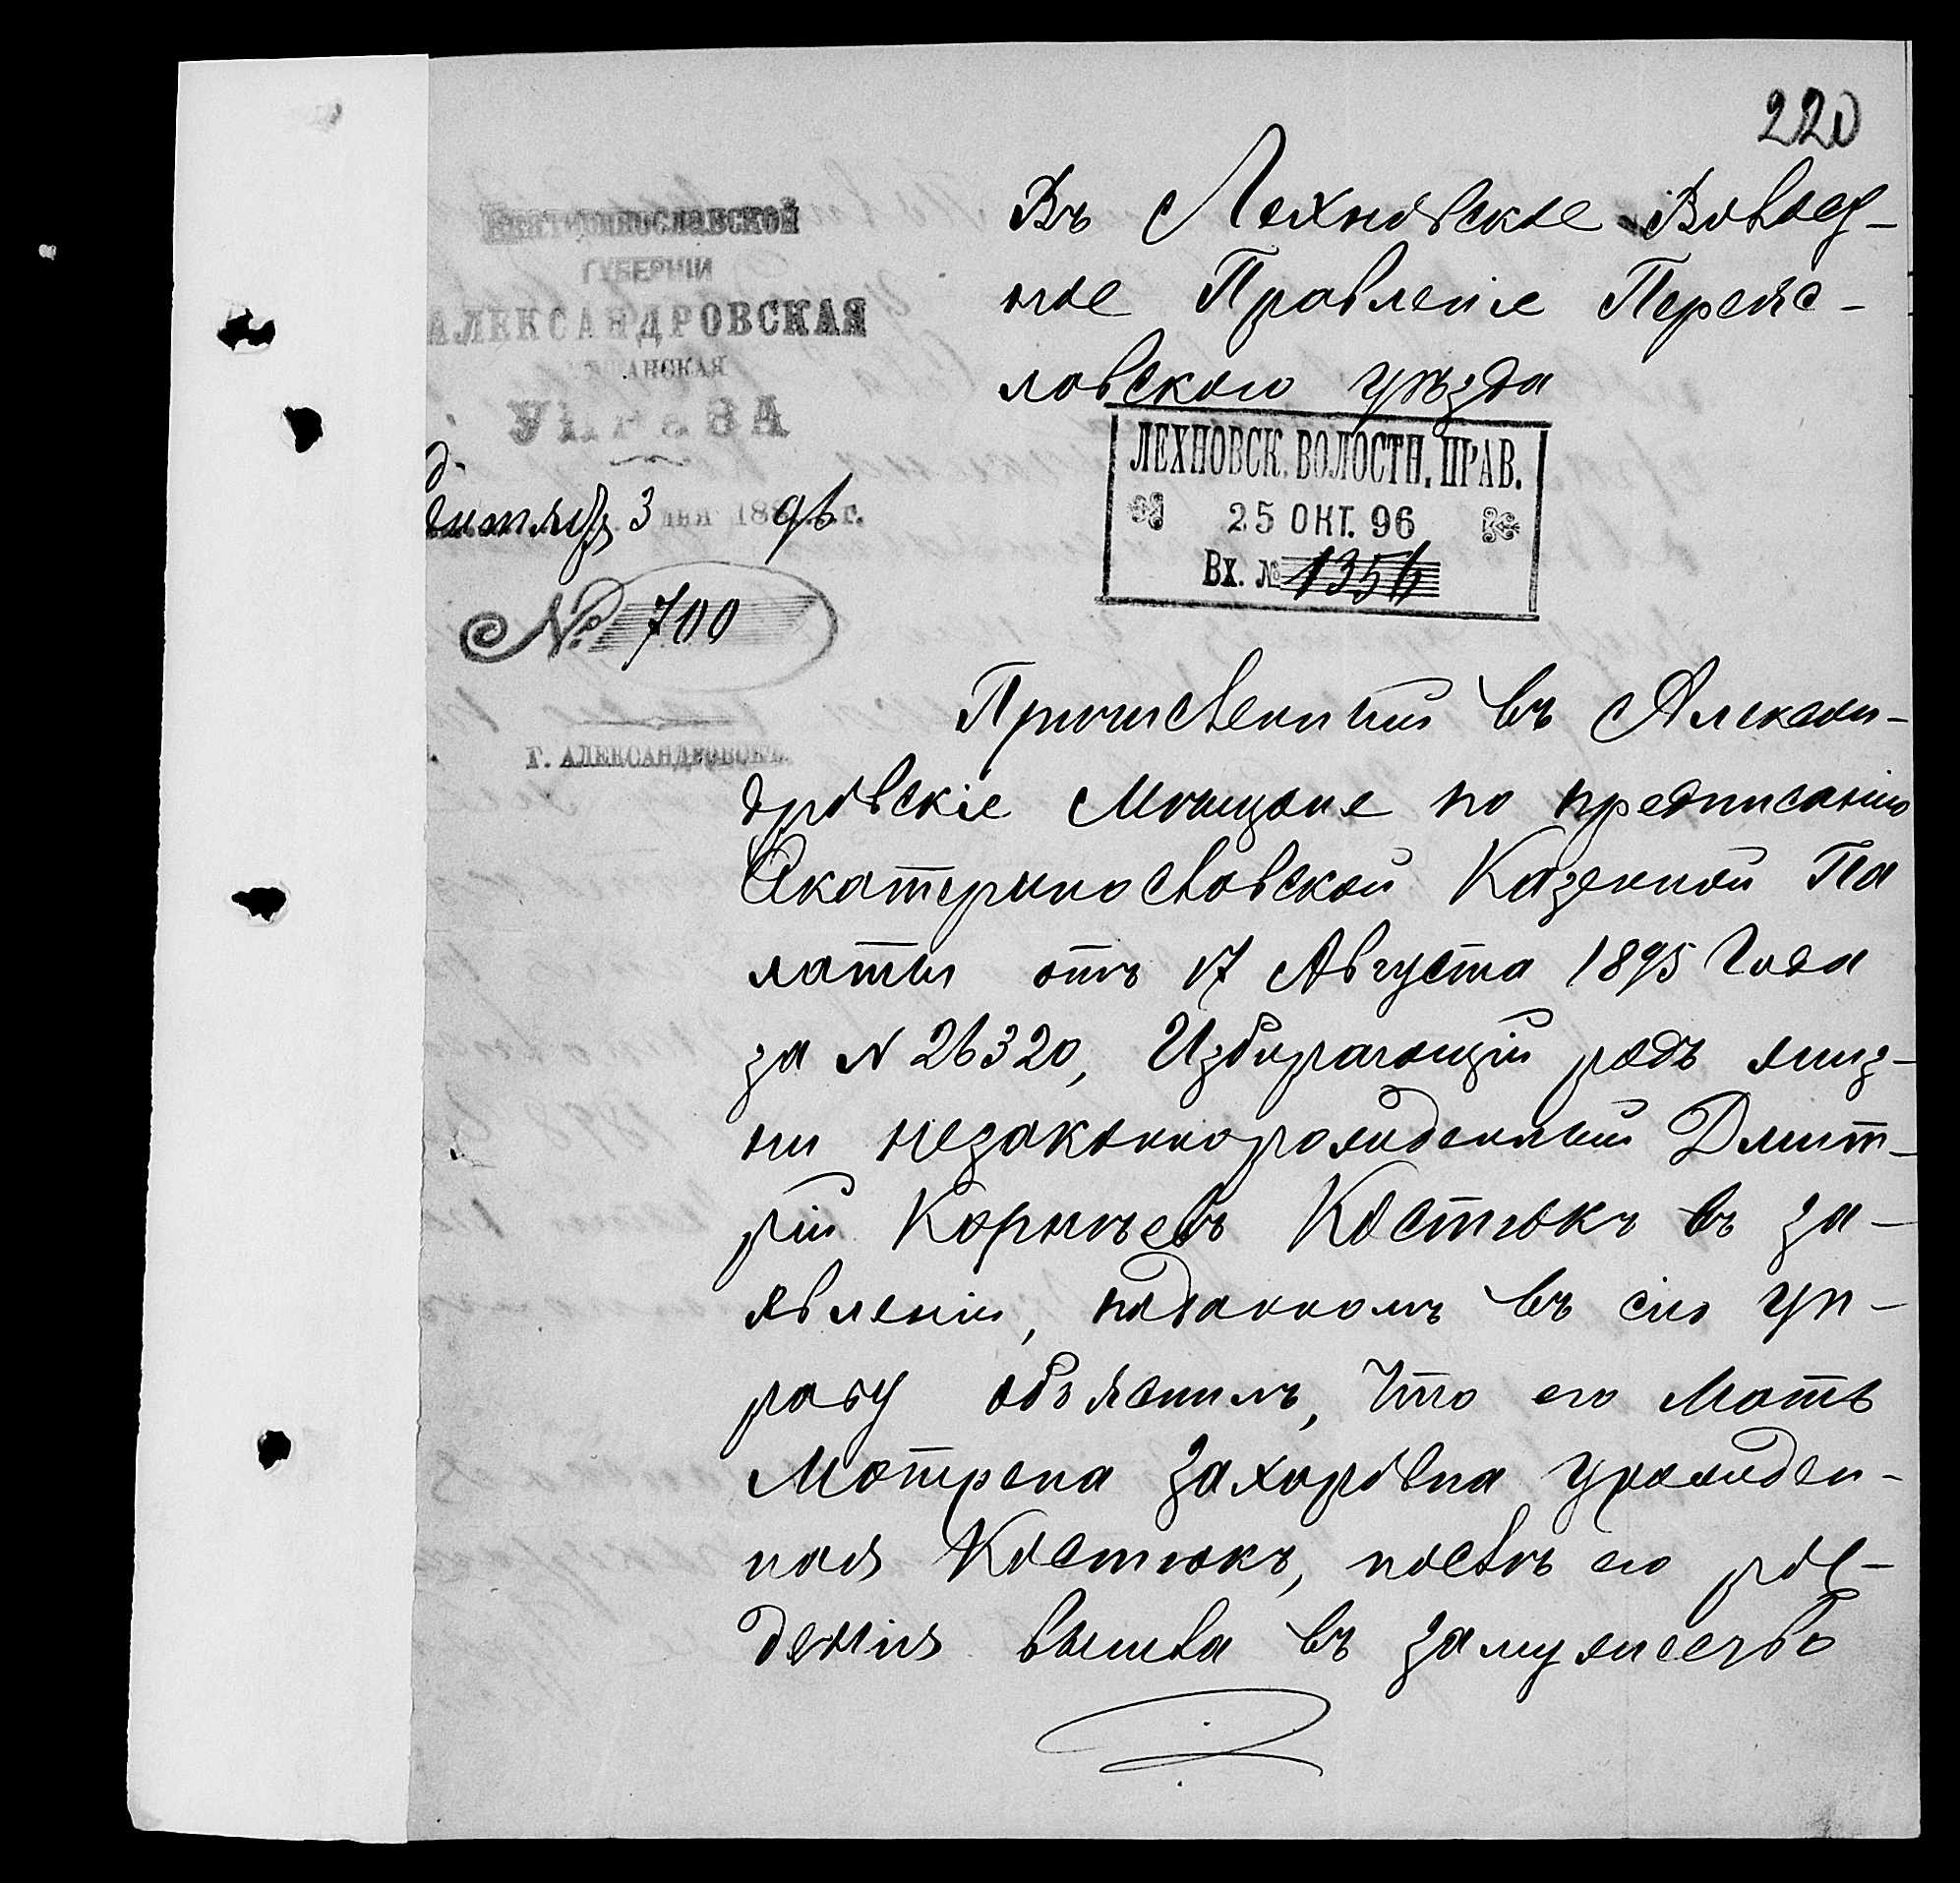 220
Екатеринославской
ГУБЕРНІИ
АЛЕКСАНДРОВСКАЯ
УПРАВА
3 дня 1896 г.
№ 700
Г. АЛЕКСАНДРОВСКЪ.
Въ Лехновское Волост-
ное Правленіе Переяс-
ловского уѣзда
ЛЕХНОВСК. ВОЛОСТН. ПРАВ.
25 ОКТ. 96
Вх. № 1356
Причисленный въ Алексан-
дровскіе Мещане по предписанію
Екатеринославской Казенной Па
латы отъ 17 Августа 1895 Года
за N 26320, Избирающій родъ жиз-
ни незаконнорожденный Дмит-
рій Корнѣевъ Костюкъ въ за-
явленіи, поданномъ въ сію Уп-
раву объяснилъ, что его Мать
Мотрена Захаровна урожден-
ная Костюкъ, послѣ его рож-
денія вышла въ замужество